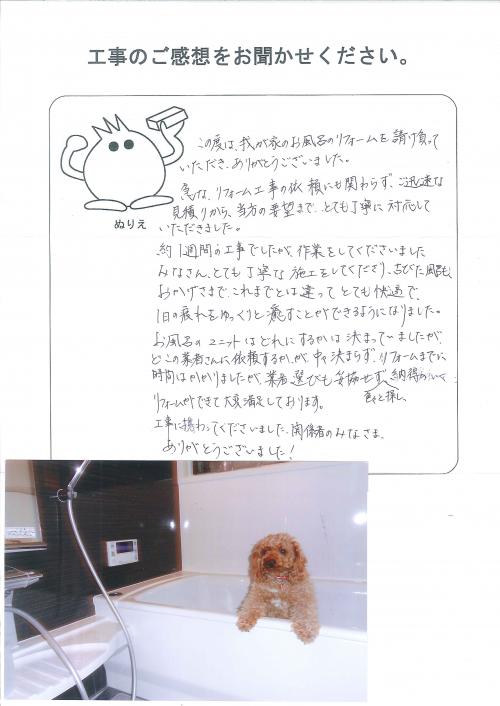 工事のご感想をお聞かせください。
ぬりえ
この度は、我が家のお風呂のリフォームを請け負って
いただき、ありがとうございました。
急な、リフォーム工事の依頼にも関わらず、ご迅速な
見積りから、当方の要望まで、とても丁寧に対応して
いただきました。
約1週間の工事でしたが、作業をしてくださいました
みなさん、とても丁寧な施工をしてくださり、古びた風呂も、
おかげさまで、これまでとは違ってとても快適で、
1日の疲れをゆっくりと癒すことができるようになりました。
お風呂のユニットはどれにするかは決まっていましたが、
どこの業者さんに依頼するか、が中々決まらず、リフォームまでに
時間はかかりましたが、業者選びも妥協せず 納得のいく
色々と探し、
リフォームができて大変満足しております。
工事に携わってくださいました、関係者のみなさま、
ありがとうございました!